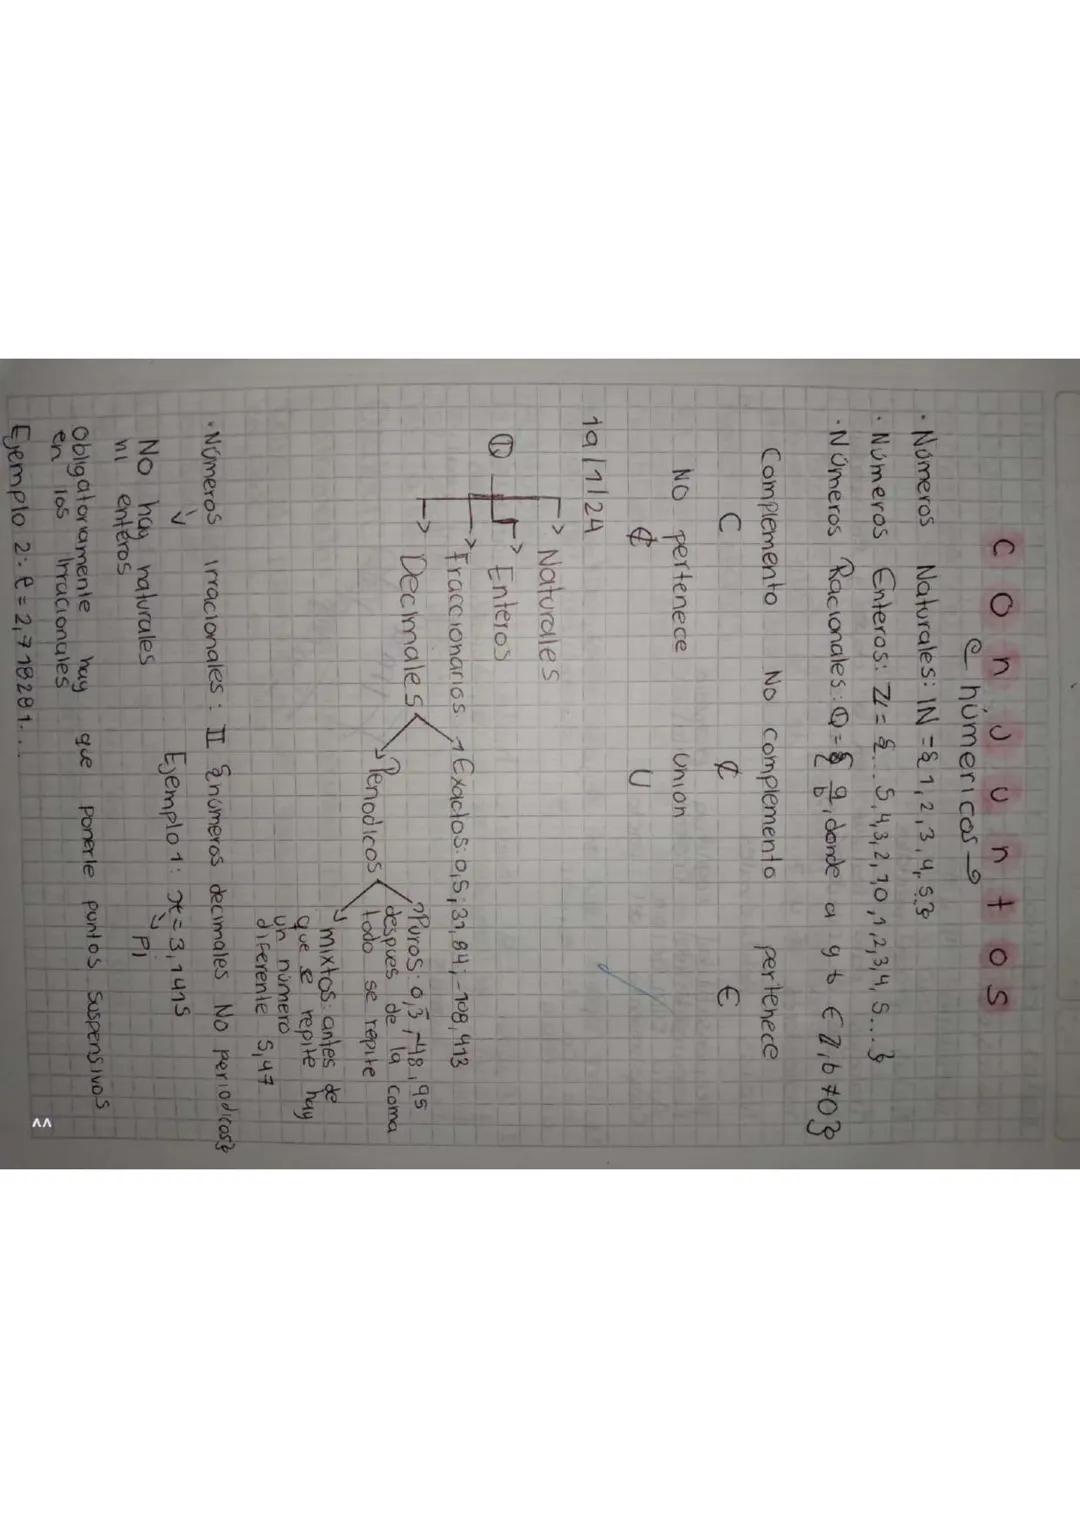 Conjuntos
númericos
· Números Naturales: IN = { 1, 2, 3, 4, 5.}
· Números Enteros: Z = {... 5, 4, 3, 2, 1 0, 1, 2, 3, 4, 5 ...}
· Números Racionales: Q = { a/b, donde a y b ∈ Z, b ≠ 0 }
Complemento No complemento pertenece
C ₵ ∈
NO pertenece Union
∉ U
19/1/24
Q
→ Naturales
→ Enteros
→ Fraccionarios
→ Decimales
→ Exactos: 0,5; 31,84; -108,413
→ Periodicos
→ Puros: 0,3̅, -48,95
despues de la coma
todo se repite
→ mixtos: antes de
que se repite hay
un número
diferente 5,47
· Números irracionales: II {números decimales No periodicos}
No hay naturales
ni enteros
Ejemplo 1: π = 3,1415
Pi
Obligatoriamente hay que ponerle puntos suspensivos
en los Irracionales
Ejemplo 2: e = 2,718281...